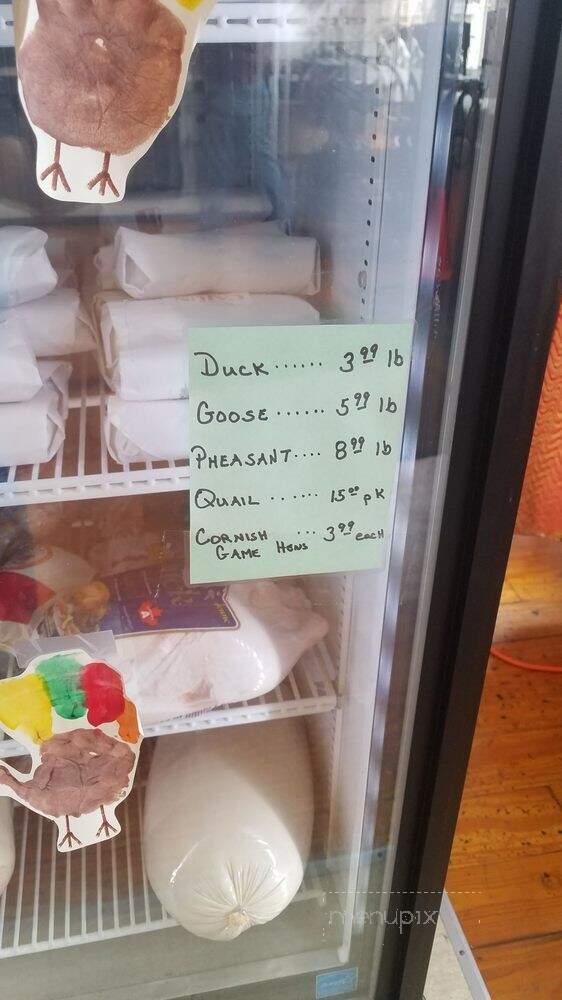 Duck ...... 3.99 lb
Goose ...... 5.99 lb
Pheasant .... 8.99 lb
Quail ...... 15.00 pk
Cornish ... 3.99 each
Game Hens
menupix